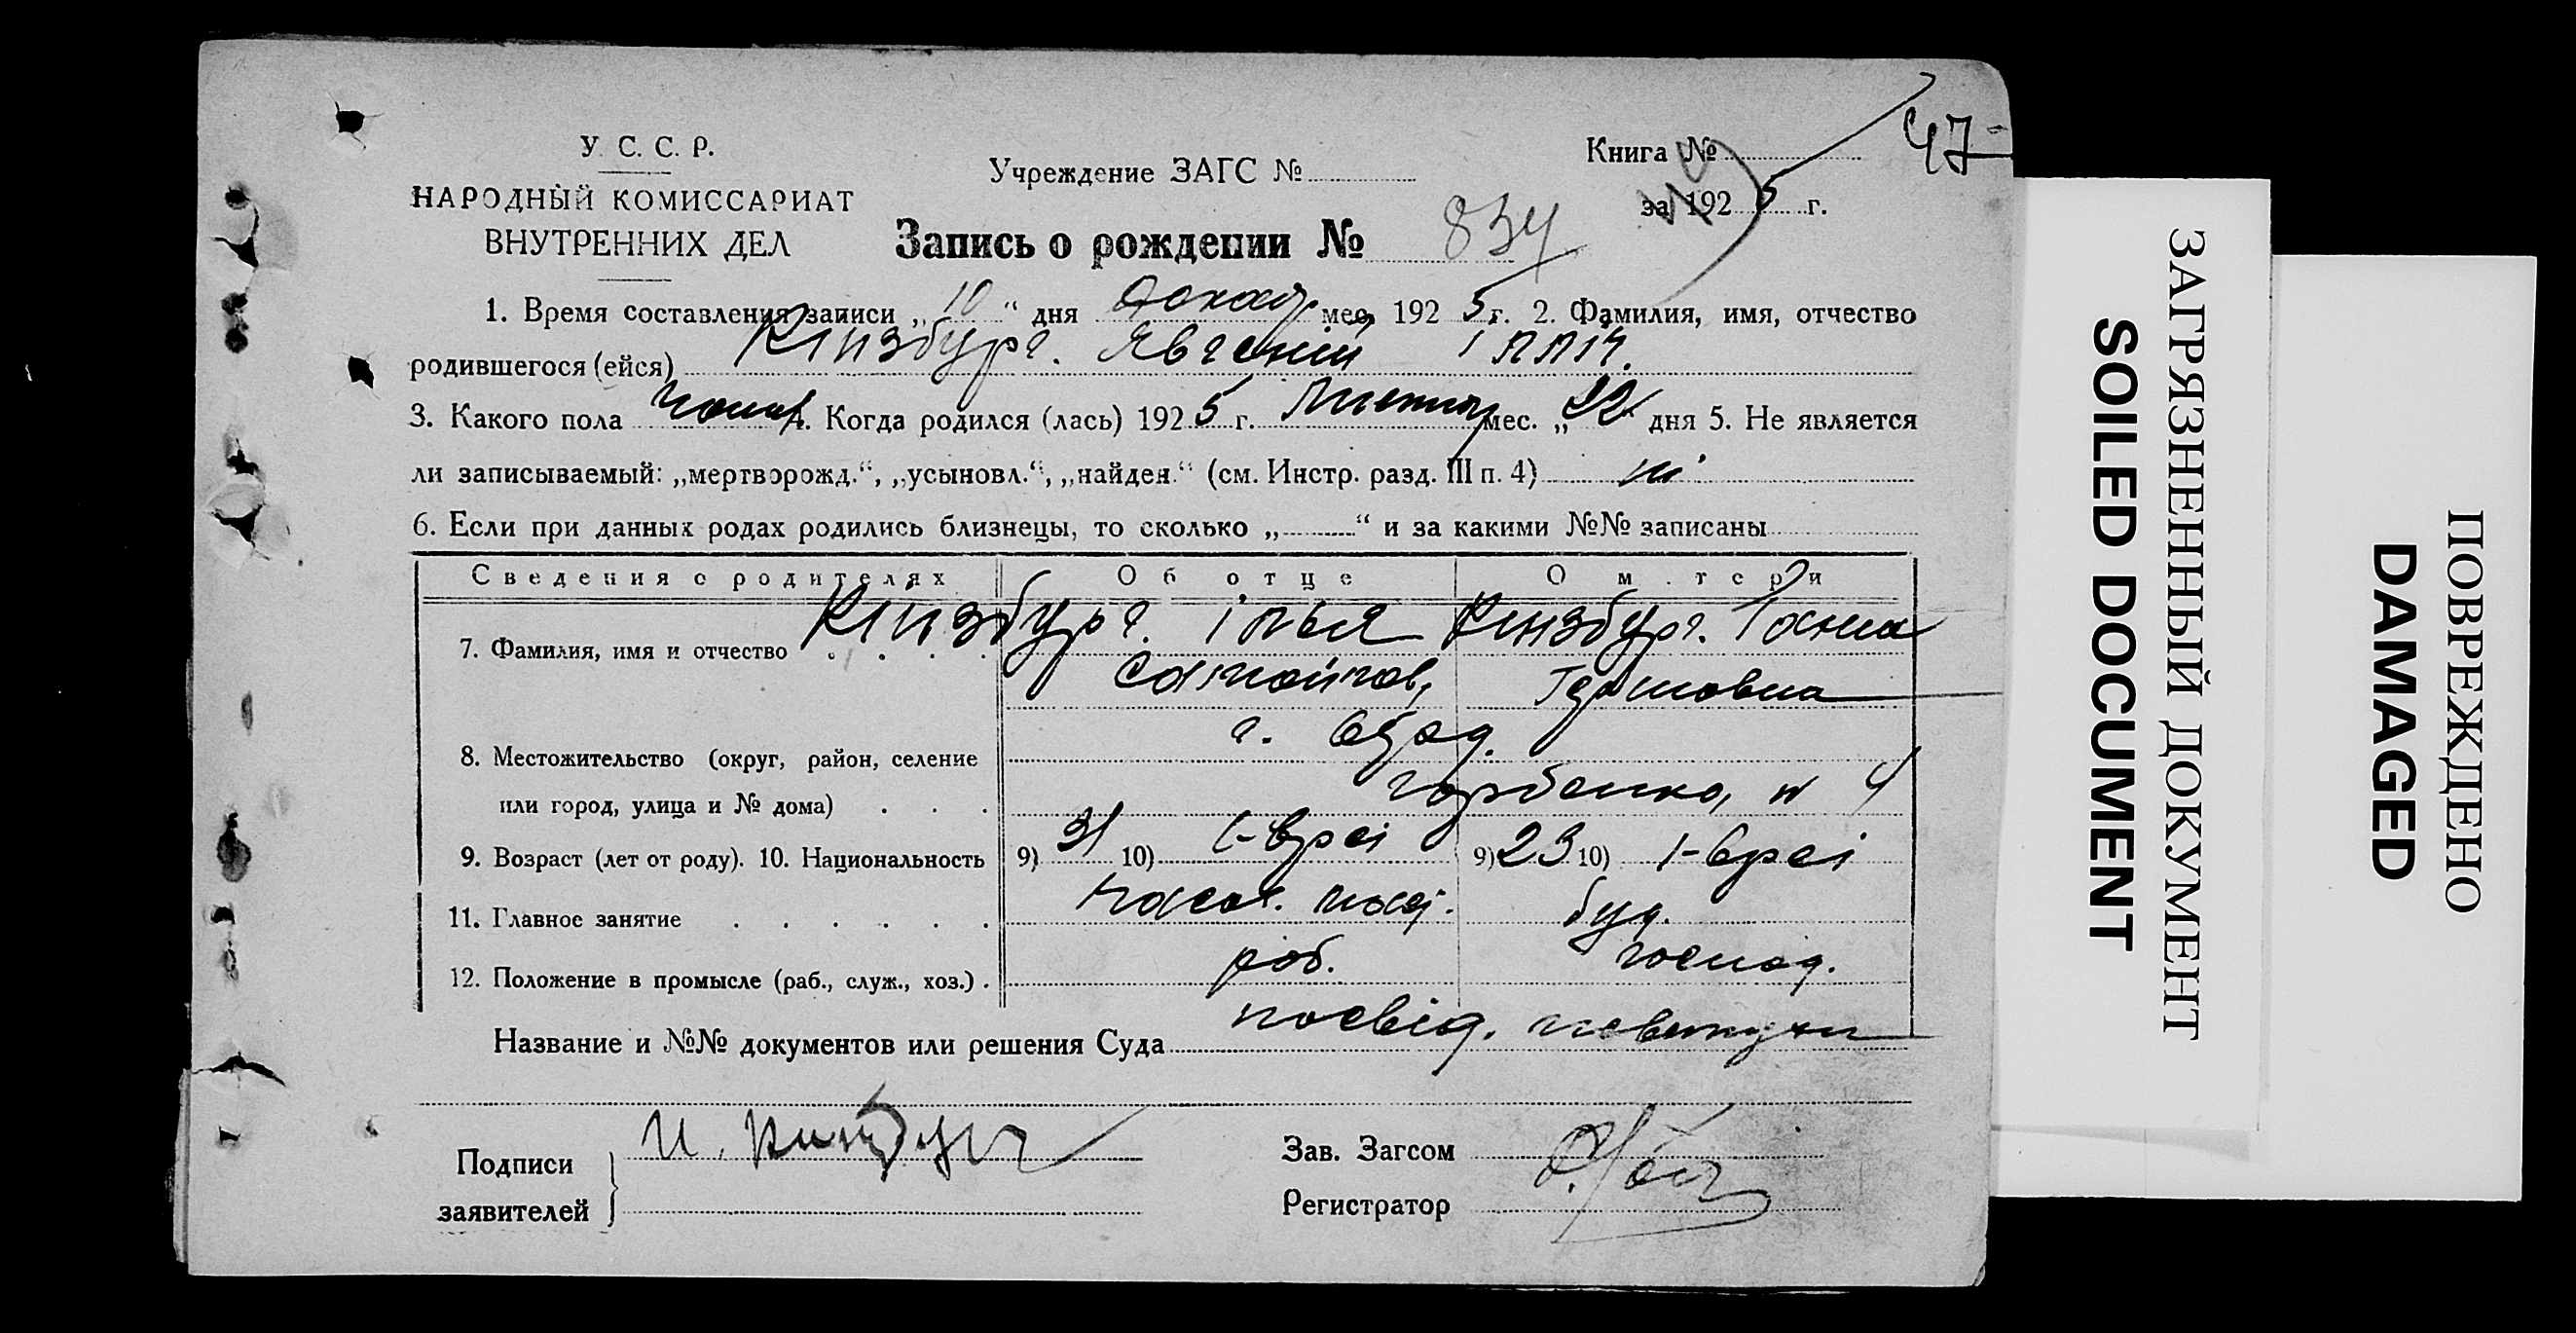 47
У. С. С. Р.
НАРОДНЫЙ КОМИССАРИАТ
ВНУТРЕННИХ ДЕЛ
Учреждение ЗАГС №
Книга №
за 1925 г.
Запись о рождении № 834
1. Время составления записи „10“ дня мес. 1925 г. 2. Фамилия, имя, отчество
родившегося (ейся) Кінзбург. Явгеній Ілліч.
3. Какого пола 4. Когда родился (лась) 1925 г. мес. „22“ дня 5. Не является
ли записываемый: „мертворожд.“, „усыновл.“, „найден.“ (см. Инстр. разд. III п. 4) ні
6. Если при данных родах родились близнецы, то сколько „ “ и за какими №№ записаны
Сведения о родителях Об отце О матери
7. Фамилия, имя и отчество Кінзбург. Ілья Кінзбург.
8. Местожительство (округ, район, селение
или город, улица и № дома) Горбенко, № 4
9. Возраст (лет от роду). 10. Национальность 9) 31 10) Євреі 9) 23 10) Євреі
11. Главное занятие
12. Положение в промысле (раб., служ., хоз.) роб. господ.
Название и №№ документов или решения Суда посвід.
Подписи
заявителей
И. Кинзбург
Зав. Загсом
Регистратор
ЗАГРЯЗНЕННЫЙ ДОКУМЕНТ
SOILED DOCUMENT
ПОВРЕЖДЕНО
DAMAGED